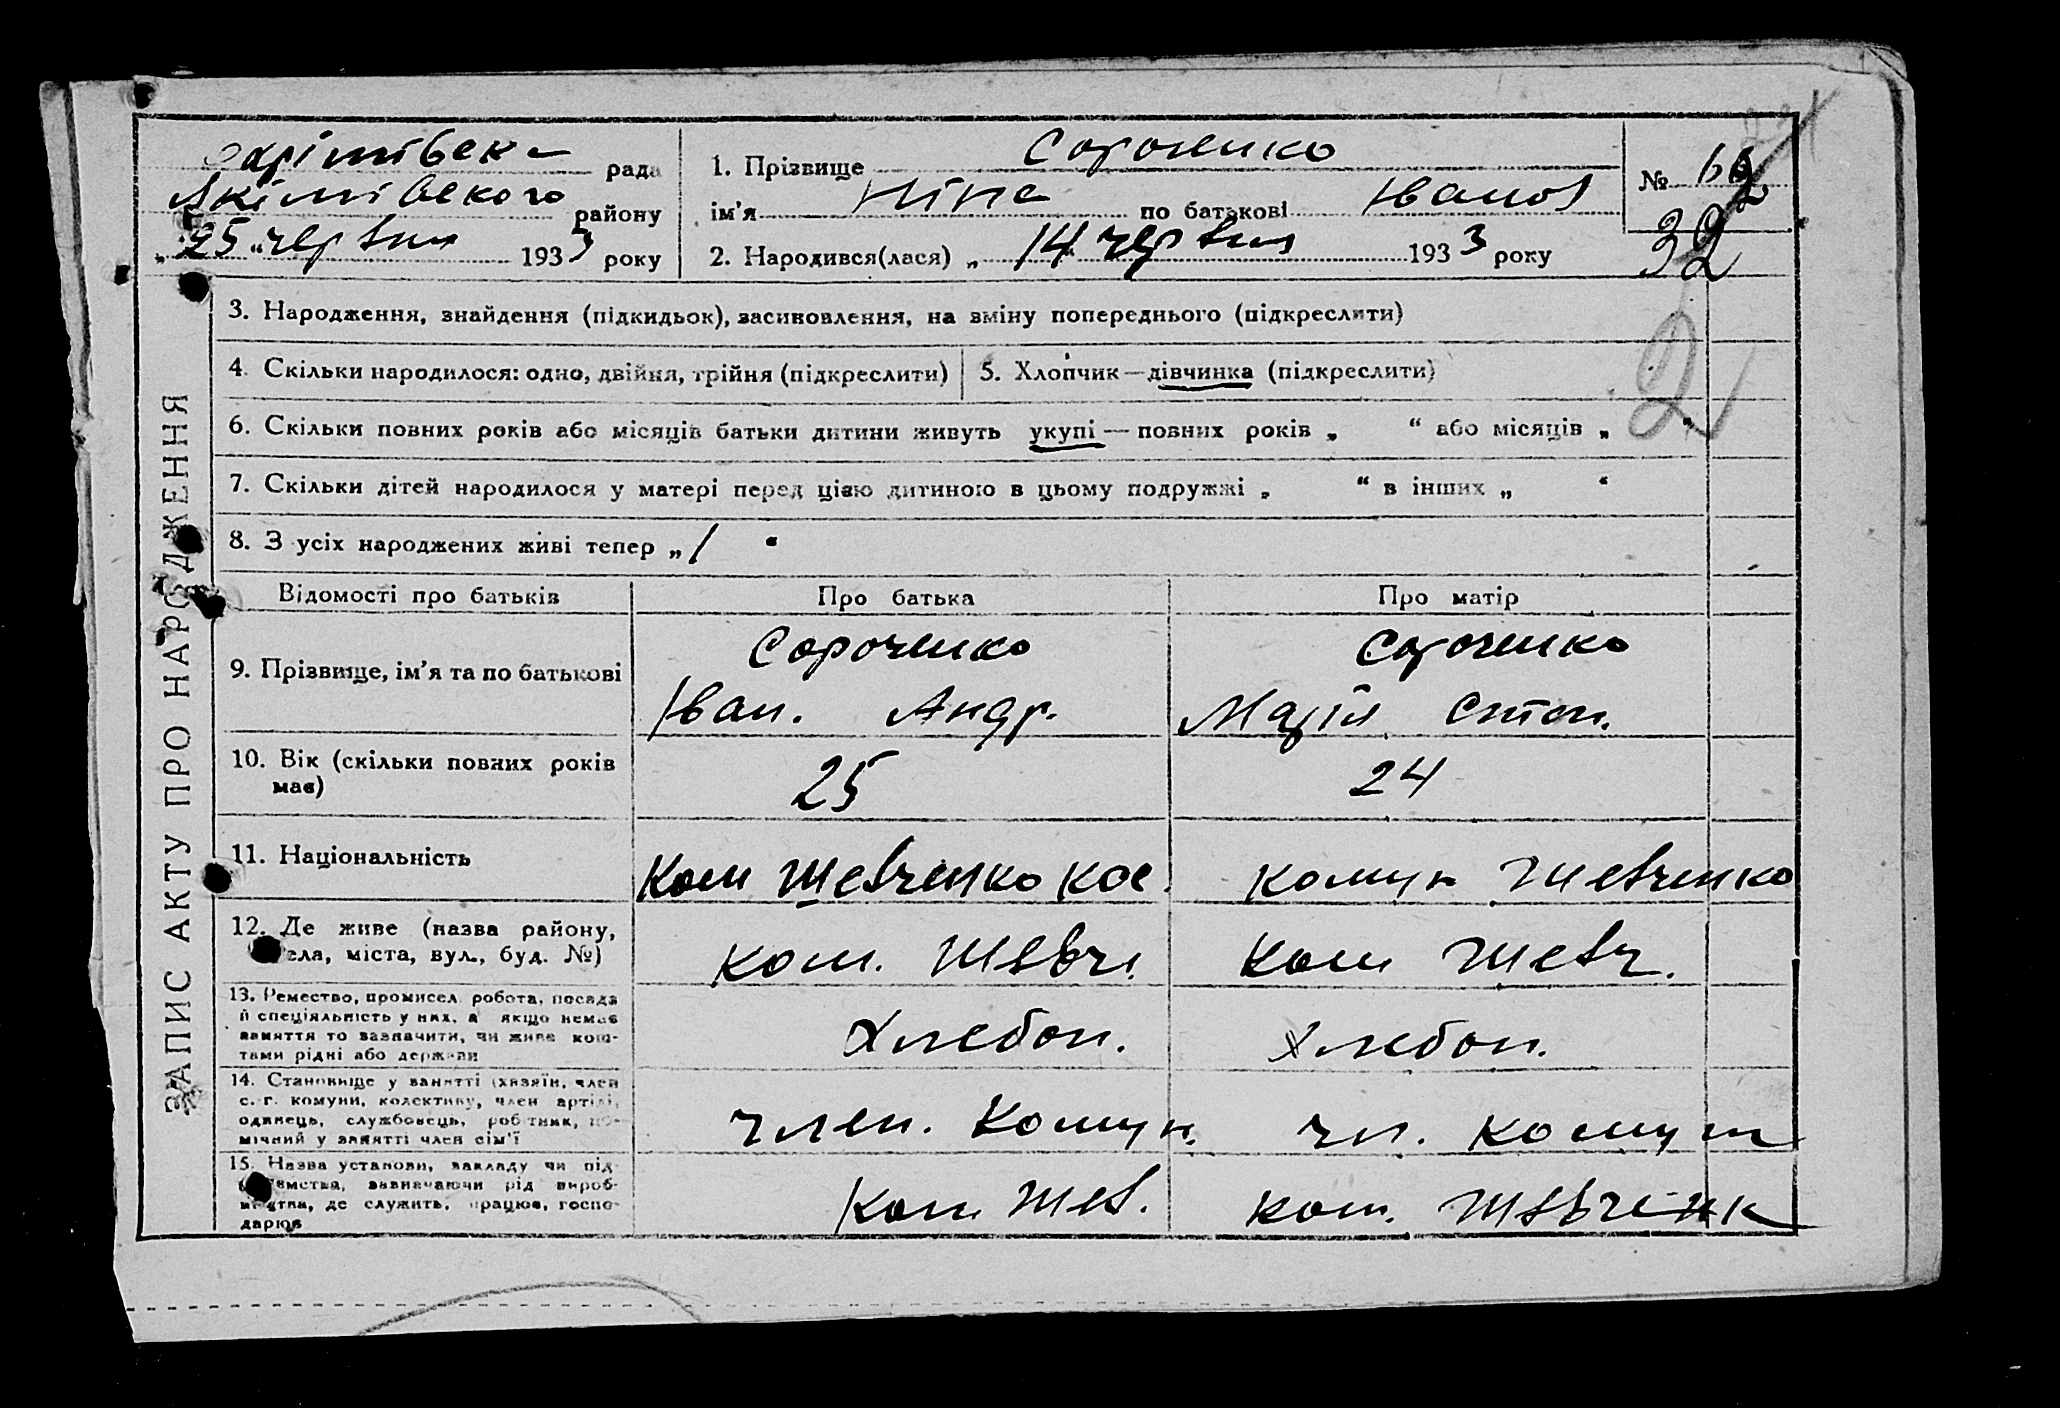 Охрімівська рада
Якимівського району
„25" червня 1933 року
1. Прізвище Сороченко
ім'я Ніна по батькові Іванов
2. Народився(лася) „14 червня 1933 року
№ 32
3. Народження, знайдення (підкидьок), засиновлення, на зміну попереднього (підкреслити)
4. Скільки народилося: одно, двійня, трійня (підкреслити)
5. Хлопчик—дівчинка (підкреслити)
6. Скільки повних років або місяців батьки дитини живуть укупі—повних років „ " або місяців „ "
2
7. Скільки дітей народилося у матері перед цією дитиною в цьому подружжі „ " в інших „ "
8. З усіх народжених живі тепер „1 "
ЗАПИС АКТУ ПРО НАРОДЖЕННЯ
Відомості про батьків Про батька Про матір
9. Прізвище, ім'я та по батькові
Сороченко Іван. Андр.
Сороченко Марія Степ.
10. Вік (скільки повних років
має)
25 24
11. Національність
Ком Шевченко
комун Шевченко
12. Де живе (назва району,
села, міста, вул., буд. №)
ком. Шевч. Ком Шевч.
13. Ремество, промисел, робота, посада
й спеціяльність у них, а якщо немає
заняття то зазначити, чи живе кош-
тами рідні або держави
Хлебоп. Хлебоп.
14. Становище у занятті (хазяїн, член
с.-г. комуни, колективу, член артілі,
одинець, службовець, робітник, по-
мічний у занятті член сім'ї
член. Комун. чл. комун
15. Назва установи, закладу чи під-
ємства, зазначаючи рід вироб-
ництва, де служить, працює, госпо-
дарює
Ком Шев. ком. Шевчінк